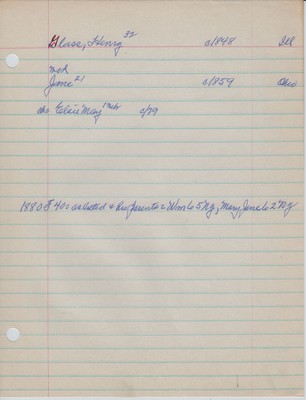 Glass, Henry 32 c1848 Ill
md
Jane 21 c1859 Ohio
ch: Elsie May 1 mo c/79
1880 F 40 = as listed + his parents = Wm b NJ, Mary Jane b NJ